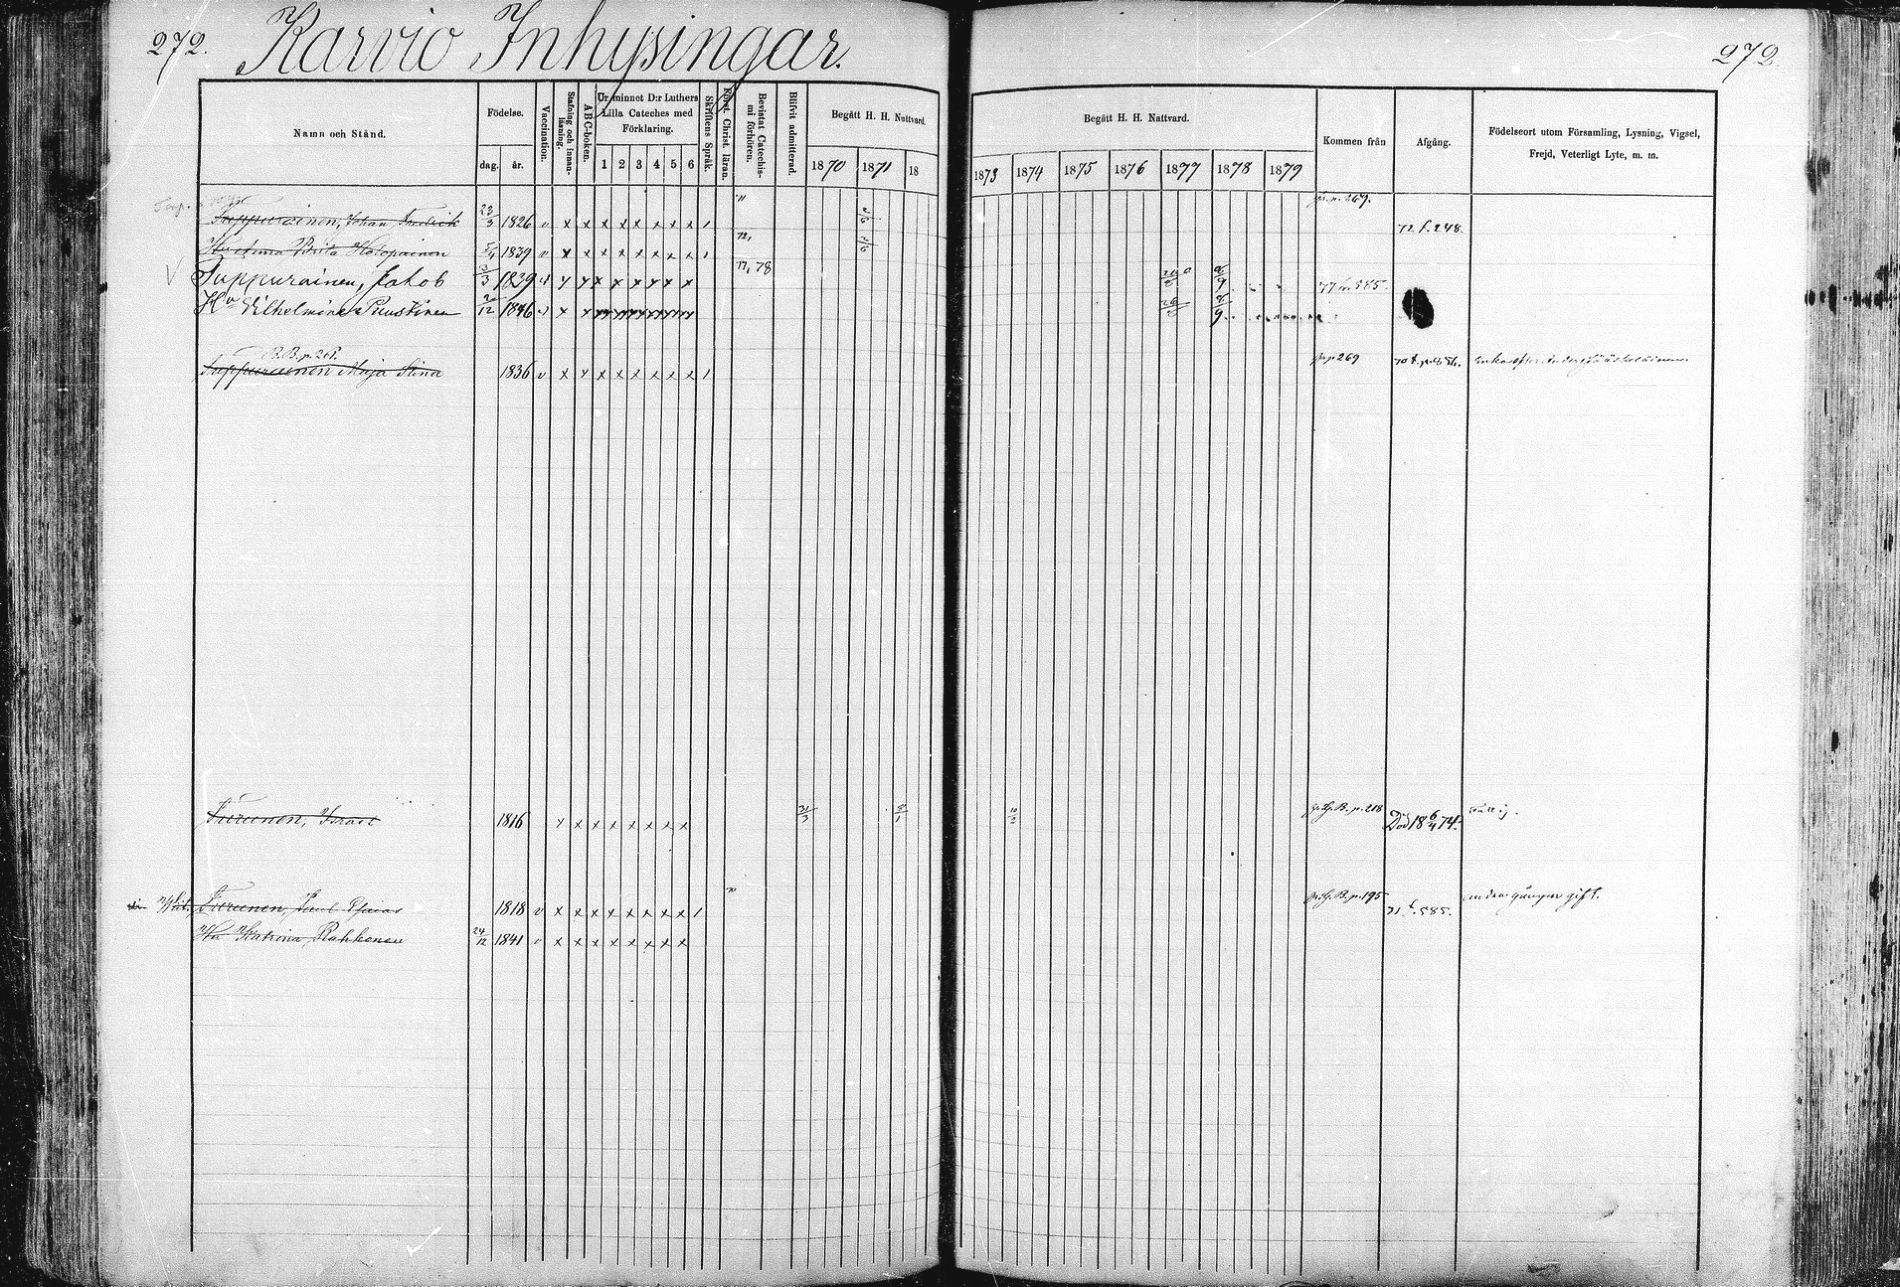 272. Karvio Inhysingar. 272.
Namn och Stånd. Födelse. dag. år. Vaccination. Stafning och innan-läsning. ABC-boken. Ur minnet D:r Luthers Lilla Cateches med Förklaring. 1 2 3 4 5 6 Skriftens Språk. Först. Christ. läran. Bevistat Catechis-mi förhören. Blifvit admitterad. Begått H. H. Nattvard. 1870 1871 18
Begått H. H. Nattvard. 1873 1874 1875 1876 1877 1878 1879 Kommen från Afgång. Födelseort utom Församling, Lysning, Vigsel, Frejd, Veterligt Lyte, m. m.
p. 269.
Tuppurainen, Johan Fredrik 23/3 1826 v x x x x x x x x 72 f. 248.
Hu Anna Brita Holopainen 1839 v x x x x x x x x
V Tuppurainen, Jakob 3/3 1839 x x x x x x x x 77, 78 77 585.
Hu Vilhelmina Puustinen 2/12 1846 x x x x x x x x
B.B. p. 261.
Tuppurainen Maja Stina 1836 v x x x x x x x x p 269
Turunen, Israel 1816 x x x x x x x x p. 218 Död 18 6/4 74.
Turunen, Paul Esaias 1818 v x x x x x x x x p. 195 71 f. 585. andra gången gift.
Hu Katrina Rahkonen 24/12 1841 v x x x x x x x x